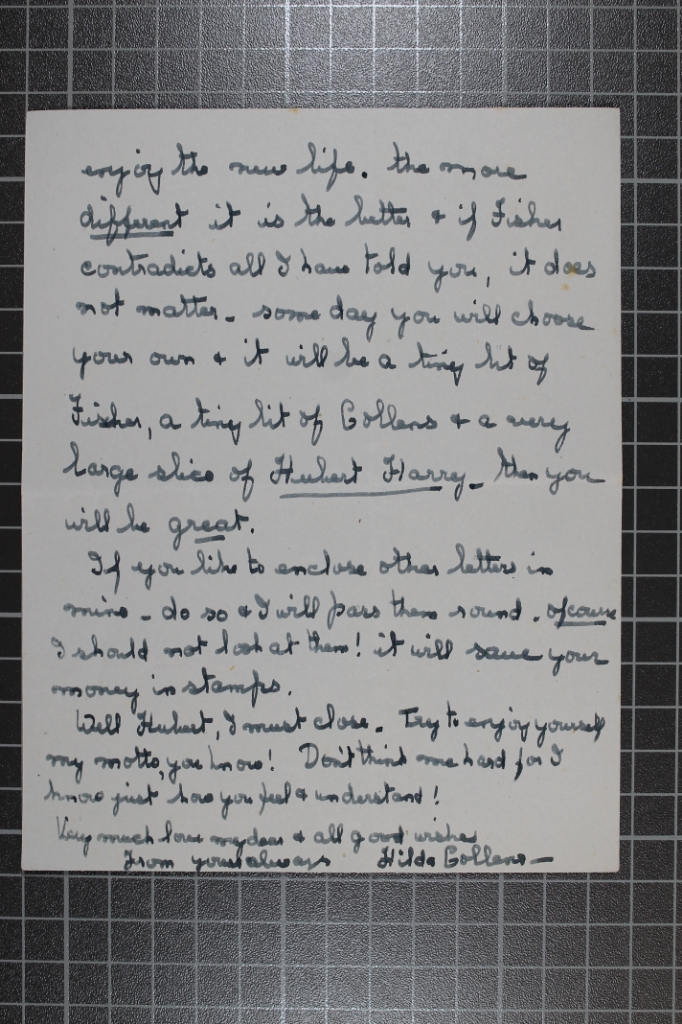 enjoy the new life. the more
different it is the better & if Fisher
contradicts all I have told you, it does
not matter - some day you will choose
your own & it will be a tiny bit of
Fisher, a tiny bit of Collens & a very
large slice of Hubert Harry - then you
will be great.
If you like to enclose other letters in
mine - do so & I will pass them round. ofcourse
I should not look at them! it will save your
money in stamps.
Well Hubert, I must close. Try to enjoy yourself
my motto, you know! Don't think me hard for I
know just how you feel & understand!
Very much love my dear & all good wishes
From yours always Hilda Collens -